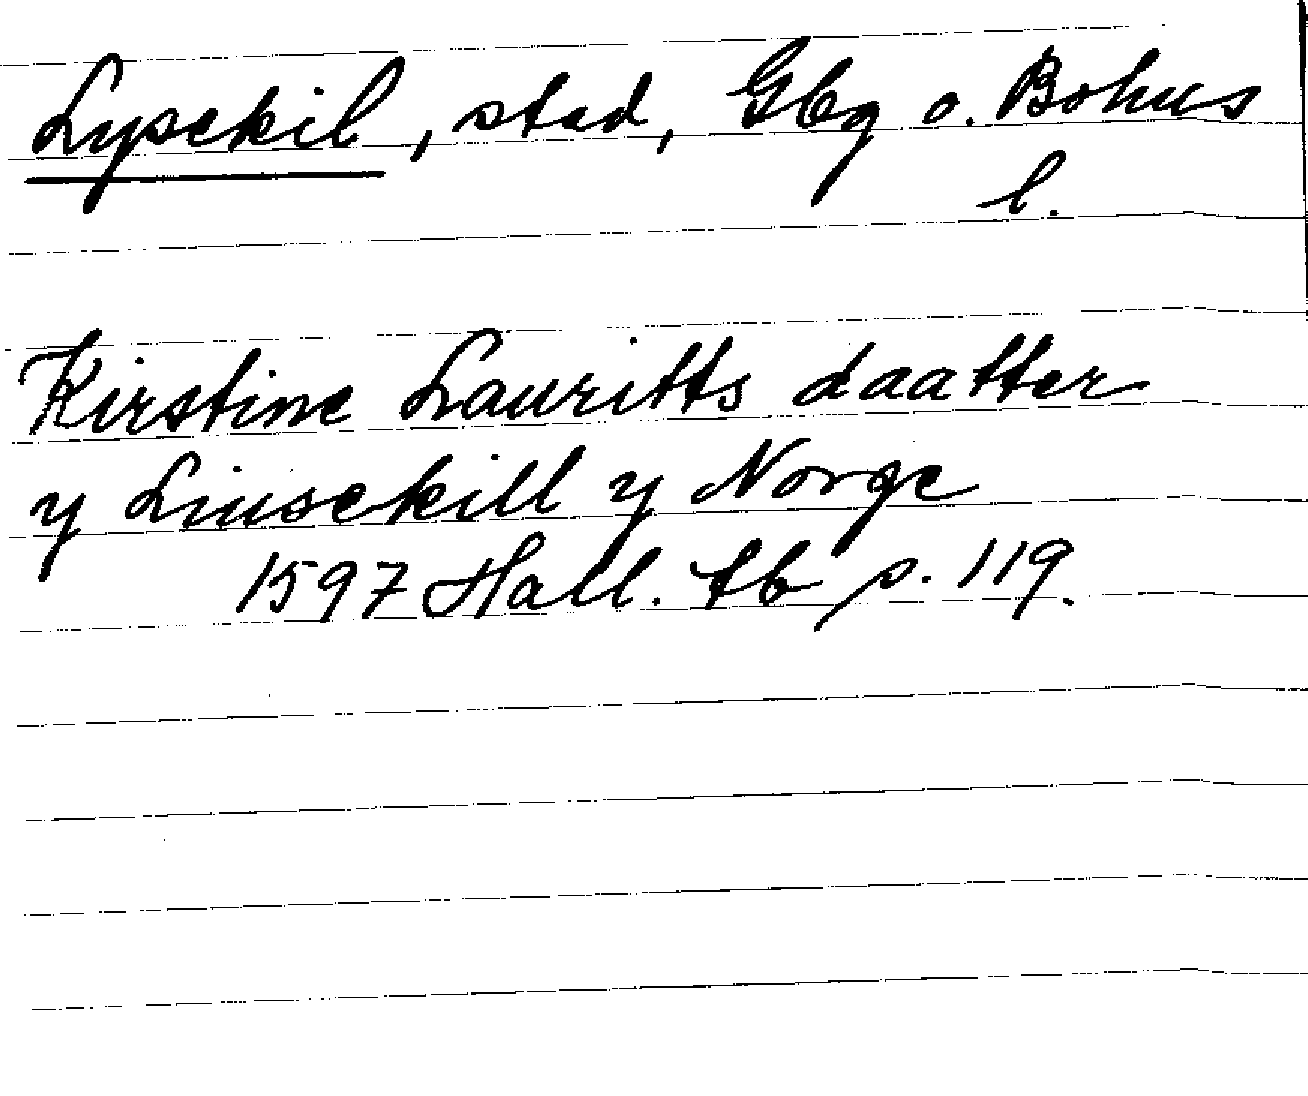 Lysekil, stad, Gbg o. Bohus
l.
Kirstine Lauritts daatter
y Liusekill y Norge
1597 Hall. tb s. 119.